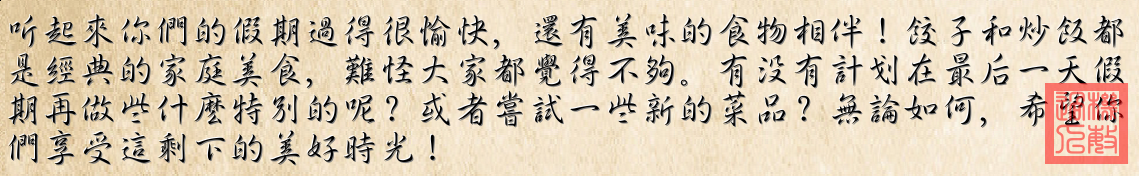 听起來你們的假期過得很愉快，還有美味的食物相伴！餃子和炒飯都
是經典的家庭美食，難怪大家都覺得不夠。有没有計划在最后一天假
期再做些什麼特別的呢？或者嘗試一些新的菜品？無論如何，希望你
們享受這剩下的美好時光！